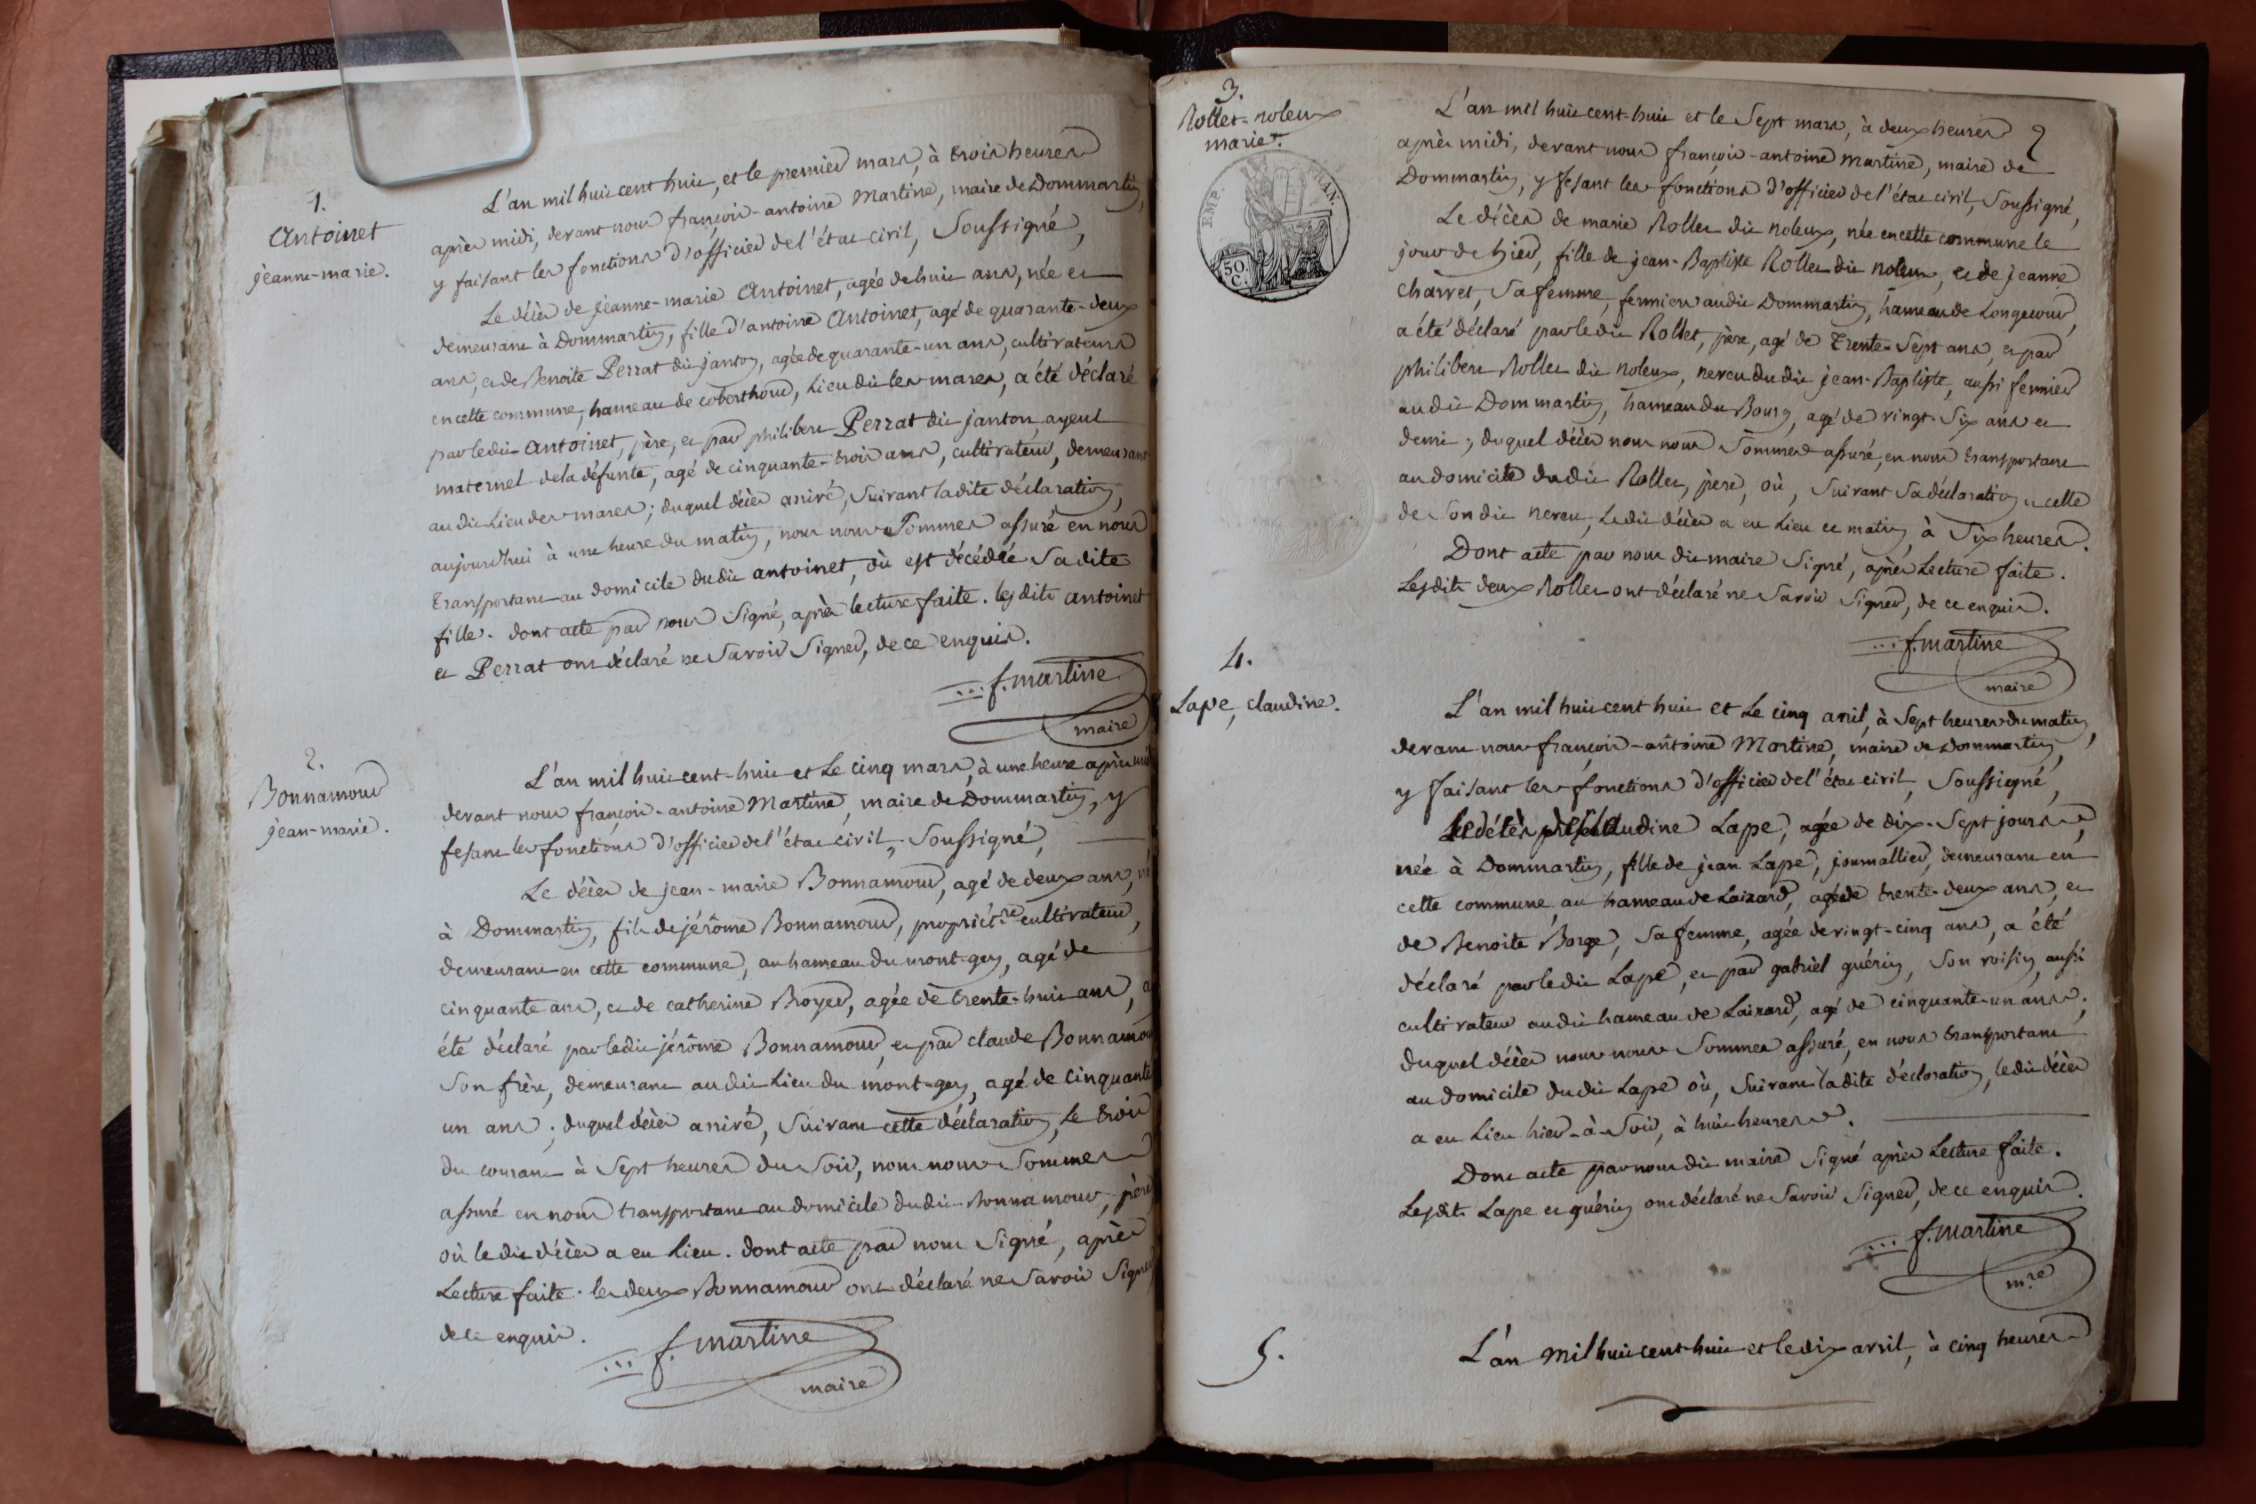 1.
Antoinet
jeanne-marie.
L'an mil huit cent huit, et le premier mars, à trois heures
après midi, devant nous françois-antoine Martine, maire de Dommartin,
y faisant les fonctions d'officier de l'état civil, Soussigné,
Le décès de jeanne-marie Antoinet, agée de huit ans, née et
demeurant à Dommartin, fille d'antoine Antoinet, agé de quarante-deux
ans, et de Benoite Perrat dit janton, agée de quarante-un ans, cultivateurs
en cette commune, hameau de coberthoud, Lieu dit les mares, a été déclaré
par le dit Antoinet, père, et par philibert Perrat dit janton, ayeul
maternel de la défunte, agé de cinquante-trois ans, cultivateur, demeurant
au dit Lieu des mares; duquel décès arrivé, Suivant la dite déclaration,
aujourd'hui à une heure du matin, nous nous Sommes assuré en nous
transportant au domicile du dit antoinet, où est décédée Sa dite
fille. dont acte par nous Signé, après lecture faite. lesdits antoinet
et Perrat ont déclaré ne Savoir Signer, de ce enquis.
f. martine
maire
2.
Bonnamour
jean-marie.
L'an mil huit cent-huit et Le cinq mars, à une heure après midi
devant nous françois-antoine Martine, maire de Dommartin, y
fesant les fonctions d'officier de l'état civil, Soussigné,
Le décès de jean-marie Bonnamour, agé de deux ans, né
à Dommartin, fils de jérôme Bonnamour, propriét.re cultivateur,
demeurant en cette commune, au hameau du mont-gey, agé de
cinquante ans, et de catherine Broyer, agée de trente-huit ans, a
été déclaré par le dit jérôme Bonnamour, et par claude Bonnamour
Son frère, demeurant au dit Lieu du mont-gey, agé de cinquante
un ans; duquel décès arrivé, Suivant cette déclaration, Le trois
du courant à Sept heures du Soir, nous nous Sommes
assuré en nous transportant au domicile du dit Bonnamour, père
où le dit décès a eu Lieu. dont acte par nous Signé, après
Lecture faite. les deux Bonnamour ont déclaré ne Savoir Signer
de ce enquis.
f. martine
maire
3.
Rollet-noleux
marie.
EMP. FRAN.
50.
C.
L'an mil huit cent-huit et le Sept mars, à deux heures
après midi, devant nous françois-antoine martine, maire de
Dommartin, y fesant les fonctions d'officier de l'état civil, Soussigné,
Le décès de marie Rollet dit noleux, née en cette commune le
jour de hier, fille de jean-Baptiste Rollet dit noleux, et de jeanne
Charvet, Sa femme, fermiers au dit Dommartin, hameau de Longecour,
a été déclaré par le dit Rollet, père, agé de Trente-Sept ans, et par
philibert Rollet dit noleux, neveu du dit jean-Baptiste, aussi fermier
au dit Dommartin, hameau du Bourg, agé de vingt-Six ans et
demi; duquel décès nous nous Sommes assuré, en nous transportant
au domicile du dit Rollet, père, où, Suivant Sa déclaration et celle
de Son dit neveu, Ledit décès a eu Lieu ce matin, à Six heures.
Dont acte par nous dit maire Signé, après Lecture faite.
Lesdits deux Rollet ont déclaré ne Savoir Signer, de ce enquis.
f. martine
maire
4.
Lape, claudine.
L'an mil huit cent huit et Le cinq avril, à Sept heures du matin,
devant nous françois-antoine Martine, maire de Dommartin,
y faisant les fonctions d'officier de l'état civil, Soussigné,
Le décès de claudine Lape, agée de dix-Sept jours,
née à Dommartin, fille de jean Lape, journallier, demeurant en
cette commune au hameau de Laizard, agé de trente-deux ans, et
de Benoite Borge, Sa femme, agée de vingt-cinq ans, a été
déclaré par le dit Lape, et par gabriel guérin, Son voisin, aussi
cultivateur au dit hameau de Laizard, agé de cinquante-un ans;
duquel décès nous nous Sommes assuré, en nous transportant
au domicile du dit Lape où, Suivant la dite déclaration, ledit décès
a eu Lieu hier-à-Soir, à huit heures.
Dont acte par nous dit maire Signé après Lecture faite.
Lesdits Lape et guérin ont déclaré ne Savoir Signer, de ce enquis.
f. martine
m.re
5.
L'an mil huit cent-huit et le dix avril, à cinq heures